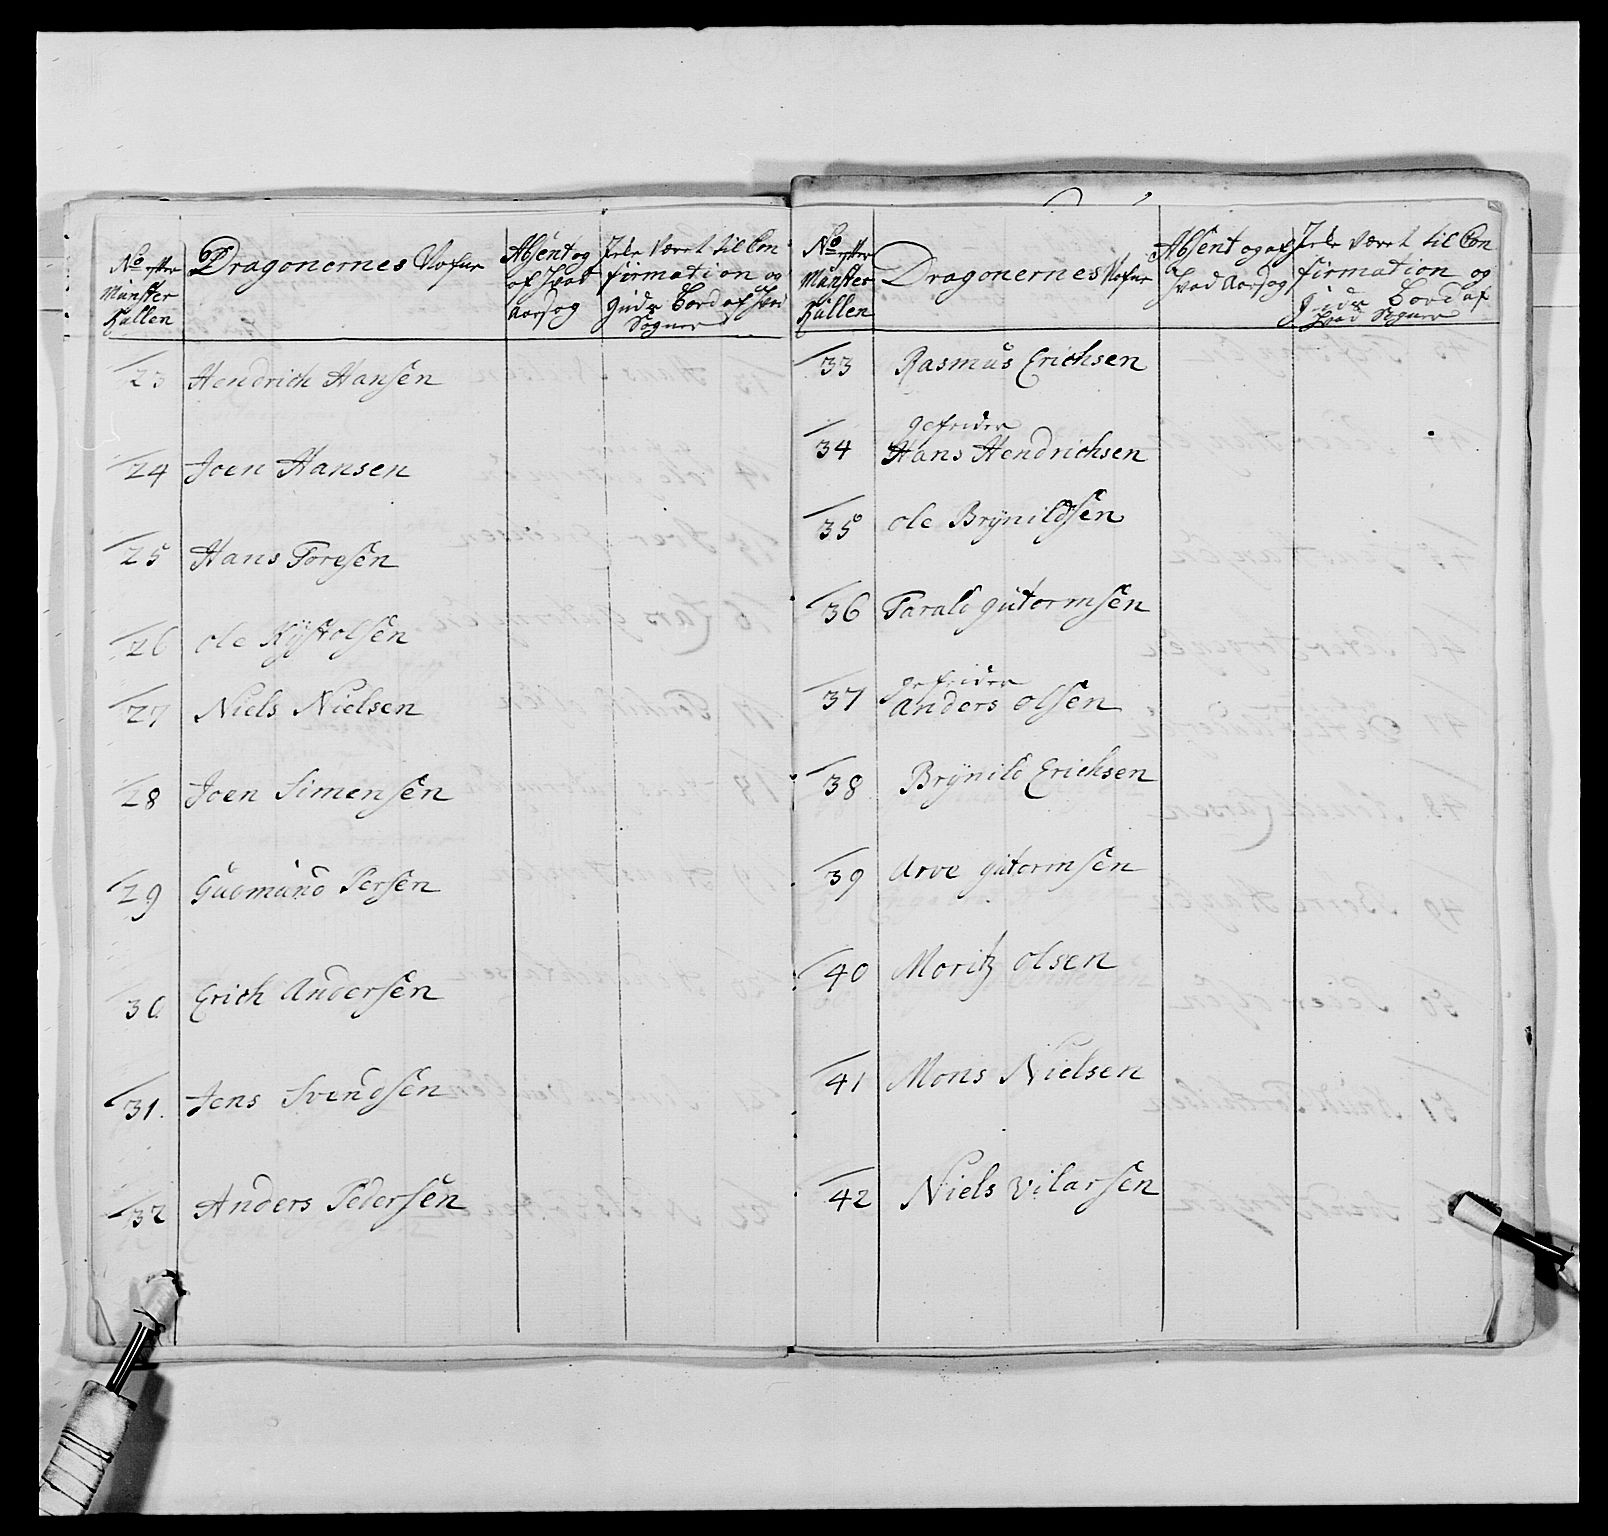 No efter
Mŭnster
Rŭllen
Dragonernes Nafne
Absent og
af Hvad
Aarsag
Icke Været til Con
firmation og
Guds Bord af Hvad
Sogner
23 Hendrich Hansen
24 Joen Hansen
25 Hans Toresen
26 Ole Kÿstolsen
27 Niels Nielsen
28 Joen Simensen
29 Gudmŭnd Persen
30 Erich Andersen
31. Jens Svendsen
32 Anders Pedersen
No efter
Mŭnster
Rŭllen
Dragonernes Nafne
Absent og af
Hvad Aarsag
Icke Været til Con
firmation og
Guds Bord af
Hvad Sogner
33 Rasmŭs Erichsen
gefrider
34 Hans Hendrichsen
35 Ole Brÿnildsen
36 Tarald gŭtormsen
gefrider
37 Anders Olsen
38 Brÿnild Erichsen
39 Arve gŭtormsen
40 Moritz Olsen
41 Mons Nielsen
42 Niels Vilarsen